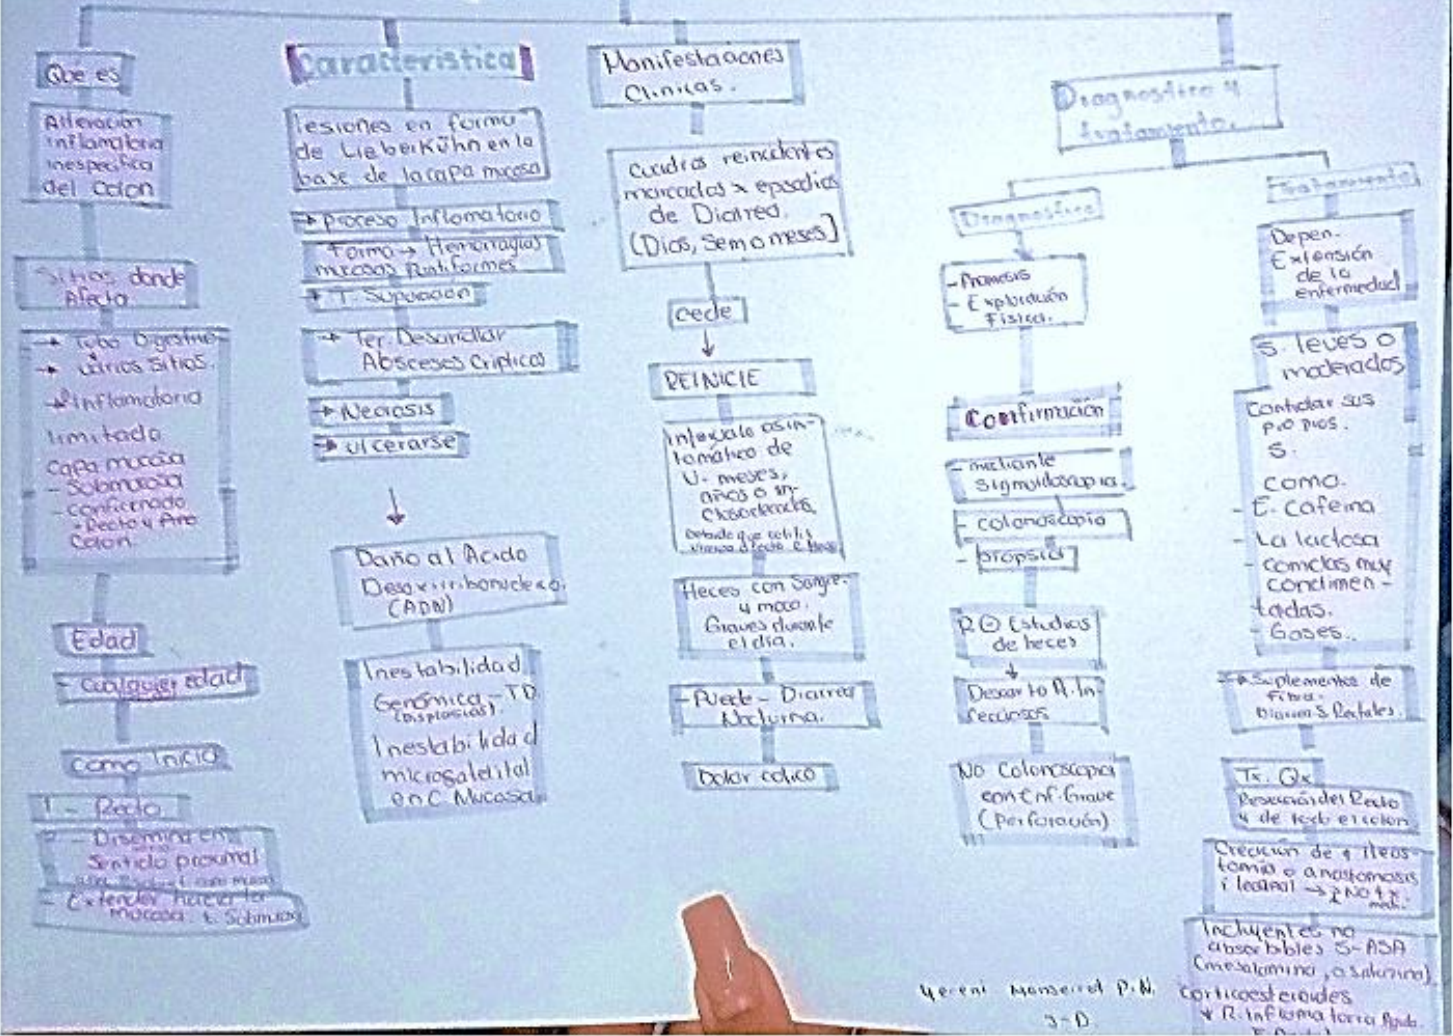 Que es
Alteración
Inflamatoria
inespecífica
del Colon
Sitios donde
Afecta
→ Tubo Digestivo
→ varios sitios.
→ Inflamatoria
limitada
Capa mucosa
- Submucosa
- Confirenado
- Recto y Ano
Colon.
Edad
- Cualquier edad
como Inicia
1 - Recto
- Disemina en
Sentido proximal
- Extender hacia la
mucosa. t. Submucosa
Caracteristica
lesiones en forma
de Lieberkühn en la
base de la capa mucosa
→ Proceso Inflamatorio
Forma → Hemorragias
mucosas Puntiformes
→ T. Supuración
→ Ter. Desarrollar
Absceses Cripticos
→ Necrosis
→ Ulcerarse
↓
Daño al Acido
Desoxirribonucleico.
(ADN)
Inestabilidad
Genómica - TD
(Displasias)
Inestabilidad
microsaldital
en C. Mucosa.
Manifestaciones
Clinicas.
Cuadros reincidentes
marcados x episodios
de Diarrea.
(Dias, Sem o meses)
cede
↓
REINICIE
Intervalo asin-
tomático de
U. meses,
años o in-
Heces con Sangre
y moco.
Graves durante
el día.
- Puede - Diarrea
Nocturna.
Dolor colico
Diagnostico y
tratamiento.
Diagnostico
- Anamesis
- Exploración
Fisica.
Confirmación
- mediante
Sigmoidoscopia.
- colonoscopia
- biopsia
Estudios
de heces
↓
Descarto A. In-
fecciosos
No Colonoscopia
con Enf. Grave
(Perforación)
Tratamiento
Depen.
Extensión
de la
enfermedad
S. leves o
moderados
Controlar sus
propios.
S.
como.
- E. Cafeina
- La lactosa
- comidas muy
condimen-
tadas.
- Gases.
→ Suplementos de
Fibra.
Diarrea S. Rectales.
Tx. Qx
Resección del Recto
y de todo el colon
Creación de 1 ileos-
tomia o anastomosis
ileoanal → NO tx
med.
Incluyentes no
absorbibles 5-ASA
(mesalamina, osalazina)
Corticoesteroides
* R. Inflamatoria Aguda
Yereni Monserrat P.N.
3-D